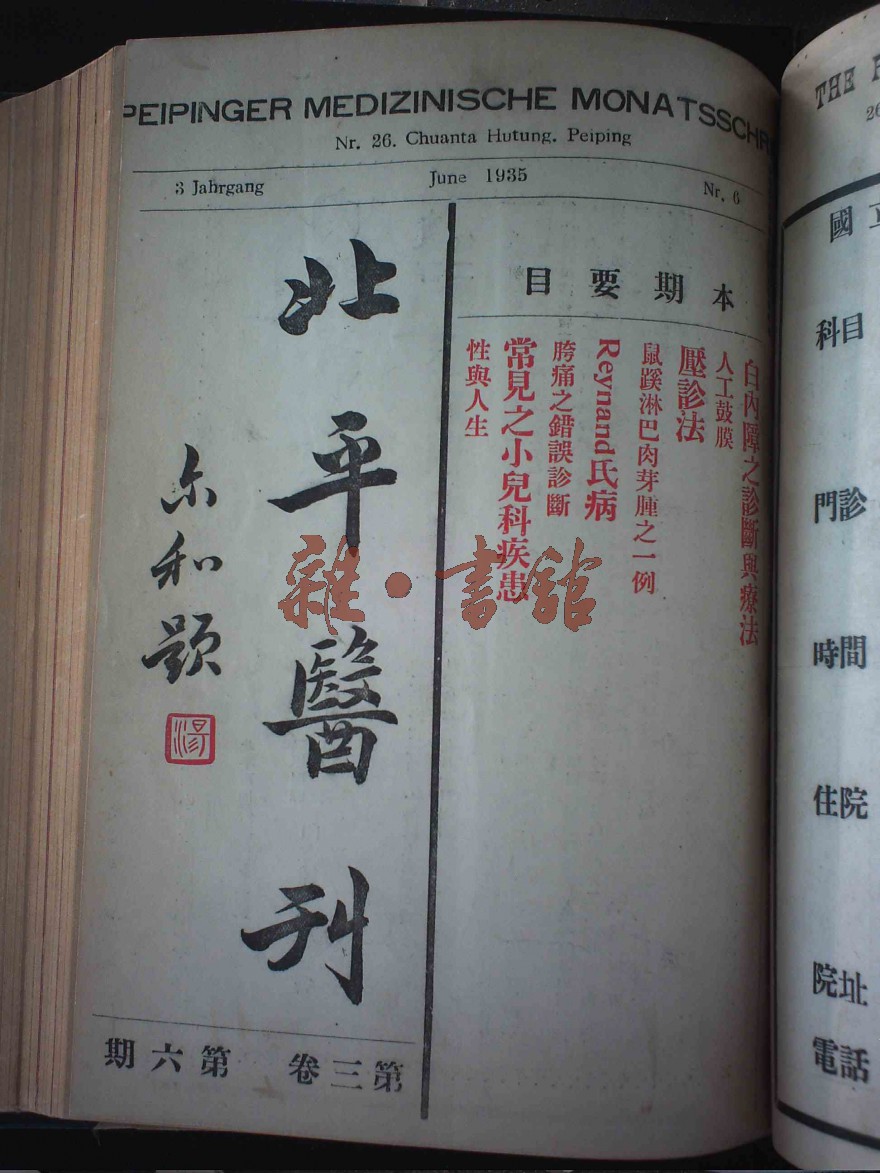 PEIPINGER MEDIZINISCHE MONATSSCHR
Nr. 26. Chuanta Hutung. Peiping
3 Jahrgang June 1935 Nr. 6
本期要目
白內障之診斷與療法
人工鼓膜
壓診法
鼠蹊淋巴肉芽腫之一例
Reynand氏病
胯痛之錯誤診斷
常見之小兒科疾患
性與人生
北平醫刊
尔和題
湯
第三卷 第六期
雜·書館
THE
26
國立
科目
門診
時間
住院
院址
電話